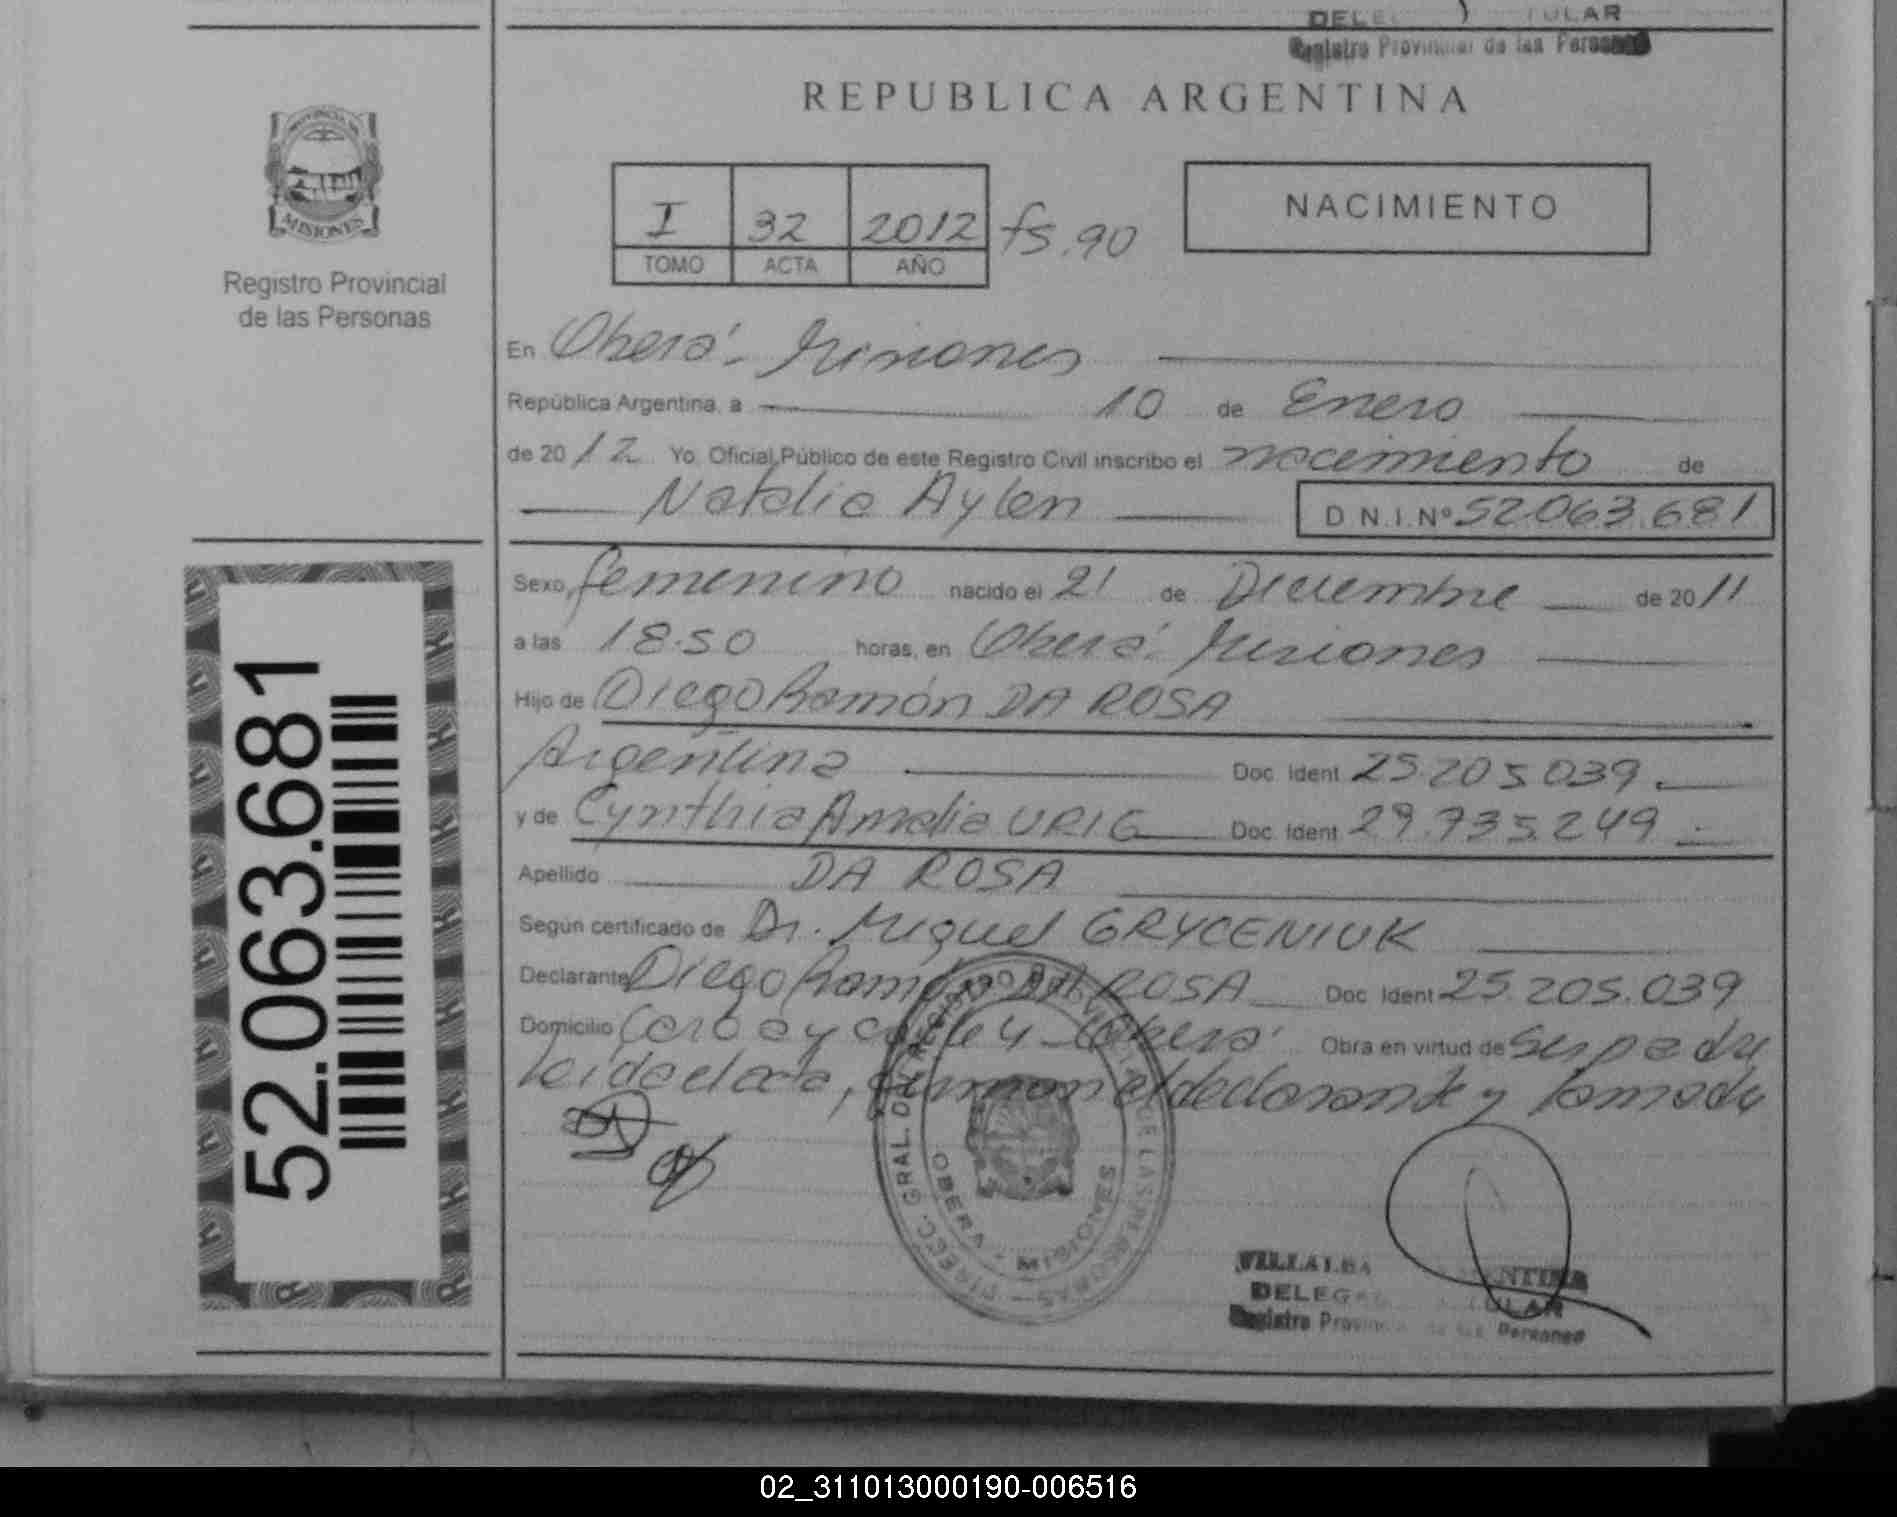 DELE TULAR
Registro Provincial de las Personas
REPUBLICA ARGENTINA
PROVINCIA DE
MISIONES
Registro Provincial
de las Personas
I 32 2012 fs.90
TOMO ACTA AÑO
NACIMIENTO
En Oberá - Misiones
República Argentina, a 10 de Enero
de 2012 Yo, Oficial Público de este Registro Civil inscribo el nacimiento de
Natalia Aylen D.N.I. Nº 52.063.681
Sexo femenino nacido el 21 de Diciembre de 2011
a las 18.50 horas, en Oberá. Misiones
Hijo de Diego Ramón DA ROSA
Argentina Doc. Ident 25.205.039.
y de Cynthia Amalia URIG Doc. Ident 29.735.249.
Apellido DA ROSA
Según certificado de Dr. Miguel GRYCENIUK
Declarante Diego Ramón DA ROSA Doc. Ident 25.205.039
Domicilio calle 4 - Oberá Obra en virtud de ser padre
leida el acta, firman el declarante y la madre
DIRECC. GRAL. DEL REGISTRO PROVINCIAL DE LAS PERSONAS
OBERA - MISIONES
VILLALBA NTINA
DELEGA TULAR
Registro Provincial de las Personas
52.063.681
02_311013000190-006516